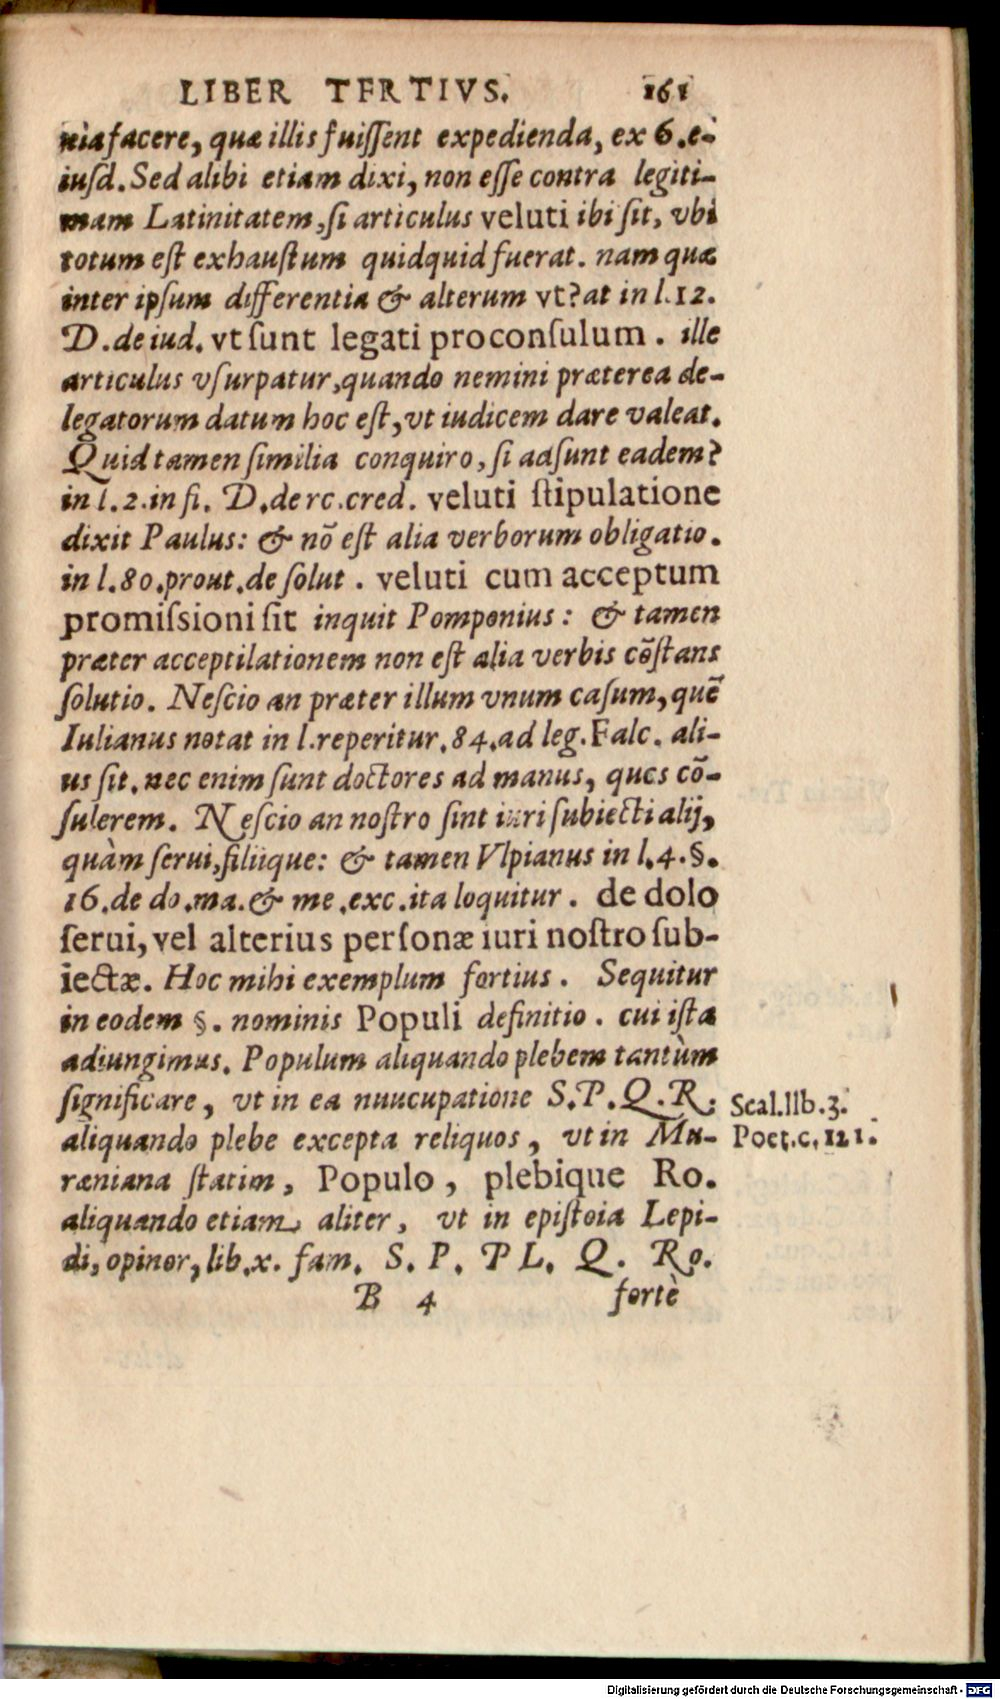 LIBER TERTIVS. 161
nia facere, quæ illis fuiſſent expedienda, ex 6. e-
iuſd. Sed alibi etiam dixi, non eſſe contra legiti-
mam Latinitatem, ſi articulus veluti ibi ſit, vbi
totum eſt exhauſtum quidquid fuerat. nam quæ
inter ipſum differentia & alterum vt? at in l.12.
D. de iud. vt ſunt legati proconſulum. ille
articulus vſurpatur, quando nemini præterea de-
legatorum datum hoc eſt, vt iudicem dare valeat.
Quid tamen ſimilia conquiro, ſi adſunt eadem?
in l. 2. in fi. D. de rc. cred. veluti ſtipulatione
dixit Paulus: & nõ eſt alia verborum obligatio.
in l. 80. prout. de ſolut. veluti cum acceptum
promiſsioni ſit inquit Pomponius: & tamen
præter acceptilationem non eſt alia verbis cõſtans
ſolutio. Neſcio an præter illum vnum caſum, quẽ
Iulianus notat in l. reperitur. 84. ad leg. Falc. ali-
us ſit. nec enim ſunt doctores ad manus, ques cõ-
ſulerem. Neſcio an noſtro ſint iuri ſubiecti alij,
quàm ſerui, filiique: & tamen Vlpianus in l. 4. §.
16. de do. ma. & me. exc. ita loquitur. de dolo
ſerui, vel alterius perſonæ iuri noſtro ſub-
iectæ. Hoc mihi exemplum fortius. Sequitur
in eodem §. nominis Populi definitio. cui iſta
adiungimus. Populum aliquando plebem tantùm
ſignificare, vt in ea nuucupatione S. P. Q. R.
aliquando plebe excepta reliquos, vt in Mu-
ræniana ſtatim, Populo, plebique Ro.
aliquando etiam aliter, vt in epiſtola Lepi-
di, opinor, lib. x. fam. S. P. PL. Q. Ro.
B 4 fortè
Scal. lib. 3.
Poet. c. 121.
Digitalisierung gefördert durch die Deutsche Forschungsgemeinschaft - DFG